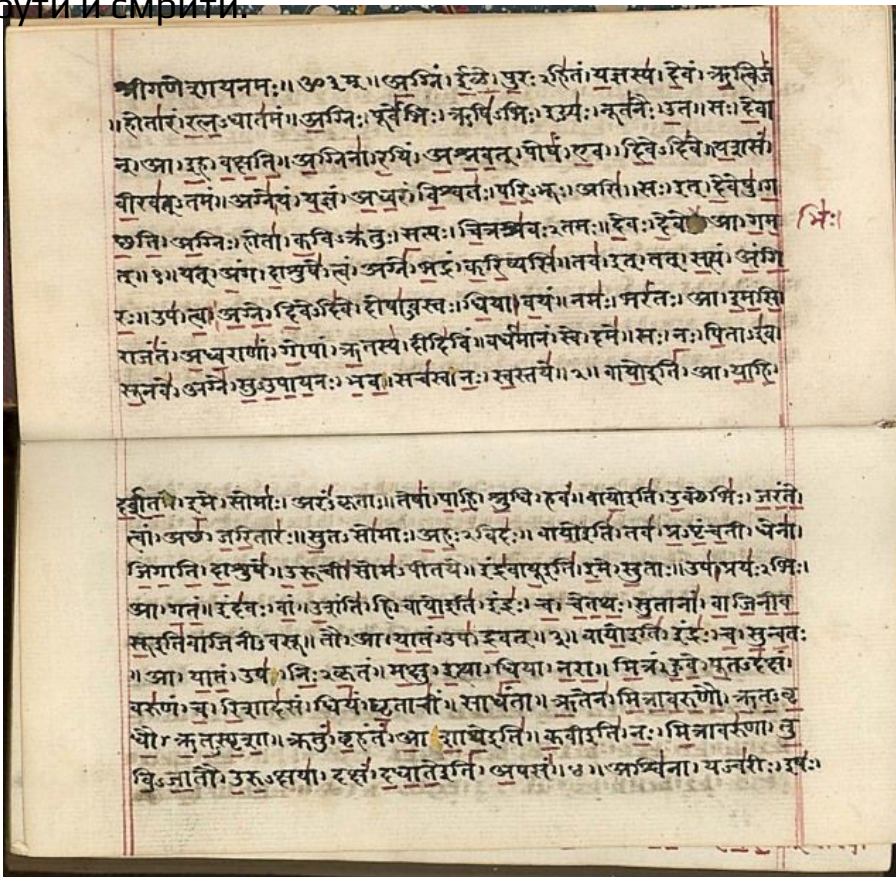 рути и смрити.
श्रीगणेशायनमः॥ ॐ३म्॥ अग्निं। ईळे। पुरःऽहितं। यज्ञस्य। देवं। ऋत्विजं
॥होतारं। रत्नऽधातमं॥ अग्निः। पूर्वेभिः। ऋषिऽभिः। ईड्यः। नूतनैः। उत॥ सः। देवा
न्। आ। इह। वक्षति॥ अग्निना। रयिं। अश्नवत्। पोषं। एव। दिवेऽदिवे॥ यशसं।
वीरवत्ऽतमं॥ अग्ने। यं। यज्ञं। अध्वरं। विश्वतः। परिऽभूः। असि॥ सः। इत्। देवेषु। ग
च्छति। अग्निः। होता। कविऽक्रतुः। सत्यः। चित्रश्रवःऽतमः॥ देवः। देवे आ। गम
भिः।
त्॥१॥ यत्। अंग। दाशुषे। त्वं। अग्ने। भद्रं। करिष्यसि॥ तव। इत्। तत्। सत्यं। अंगि
रः॥ उप। त्वा। अग्ने। दिवेऽदिवे। दोषाऽवस्तः। धिया। वयं॥ नमः। भरंतः। आ। इमसि॥
राजंतं। अध्वराणां। गोपां। ऋतस्य। दीदिविं॥ वर्धमानं। स्वे। दमे॥ सः। नः। पिताऽइव।
सूनवे। अग्ने। सुऽउपायनः। भव॥ सचस्व। नः। स्वस्तये॥२॥ वायोइति। आ। याहि।
दर्शत। इमे। सोमाः। अरंऽकृताः॥ तेषां। पाहि। श्रुधि। हवं॥ वायोइति। उक्थेभिः। जरंते।
त्वां। अच्छ। जरितारः॥ सुतऽसोमाः। अहःऽविदः॥ वायोइति। तव। प्रऽपृंचती। धेना।
जिगाति। दाशुषे॥ उरूची। सोमऽपीतये॥ इंद्रवायूइति। इमे। सुताः॥ उप। प्रयःऽभिः।
आ। गतं॥ इंदवः। वां। उशंति। हि। वायोइति। इंद्रः। च। चेतथः। सुतानां। वाजिनीव
सूइतिवाजिनीऽवसू॥ तौ। आ। यातं। उप। द्रवत्॥३॥ वायोइति। इंद्रः। च। सुन्वतः
॥आ। यातं। उप। निःऽकृतं॥ मक्षु। इत्था। धिया। नरा॥ मित्रं। हुवे। पूतऽदक्षं।
वरुणं। च। रिशादसं। धियं। घृताचीं। साधंता॥ ऋतेन। मित्रावरुणौ। ऋतऽवृ
धौ। ऋतऽस्पृशा॥ क्रतुं। बृहंतं। आशाथेइति॥ कवीइति। नः। मित्रावरुणा। तु
विऽजातौ। उरुऽक्षया। दक्षं। दधातेइति। अपसं॥४॥ अश्विना। यज्वरीः। इषः।